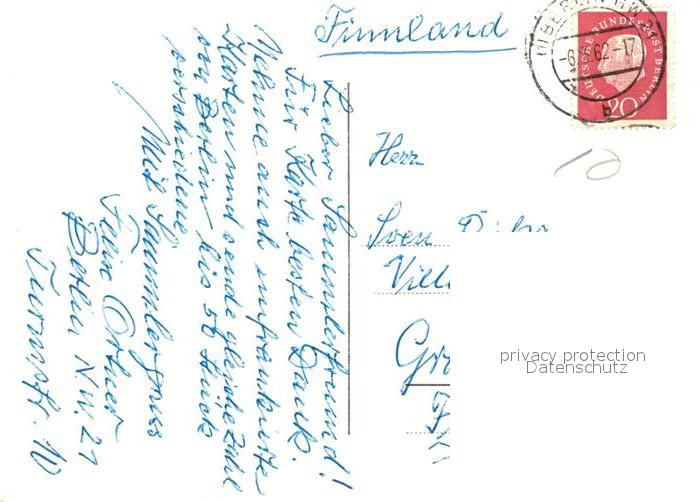 Finnland
(1) BERLIN NW 21
-6.6.62-17
b
DEUTSCHE BUNDESPOST BERLIN
20
10
Lieber Sammlerfreund!
Für Karte besten Dank.
Nehme auch unfrankierte
Karten und sende gleiche Zahl
von Berlin bis 50 Stück
verschiedene
Mit Sammlergruss
Berlin NW. 21
Turmstr. 10
Herr
Sven
Vill
Gr
privacy protection
Datenschutz